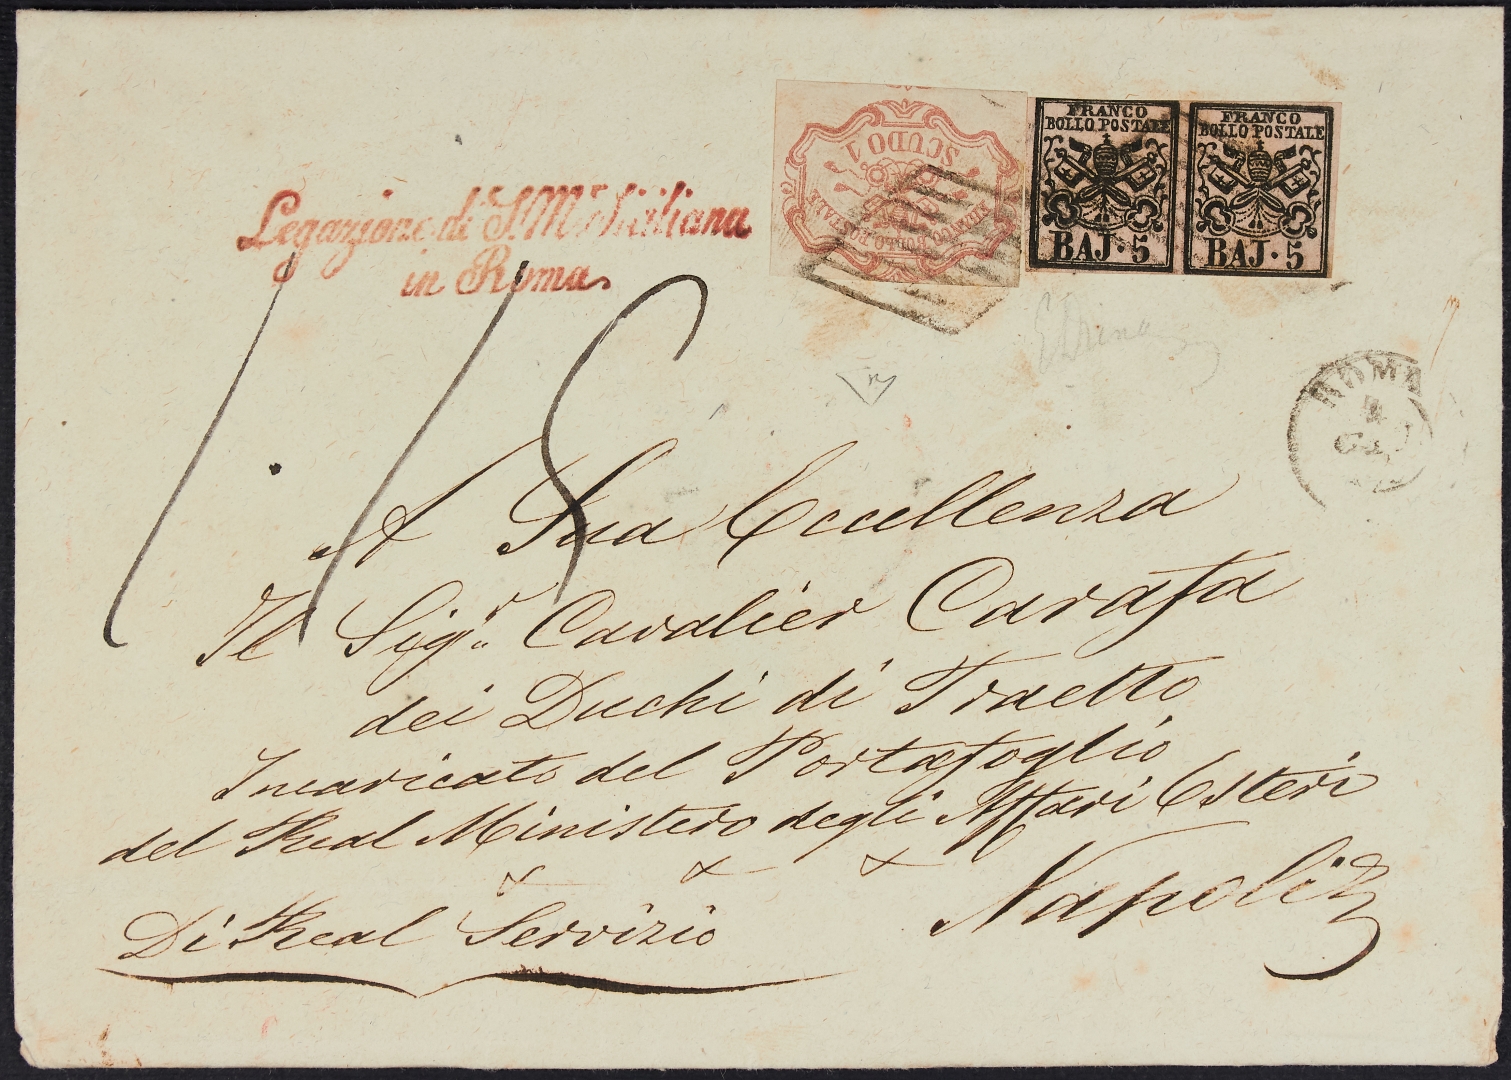 Legazione di S. Mtà Siciliana
in Roma
SCUDO 1
FRANCO BOLLO POSTALE
FRANCO
BOLLO POSTALE
BAJ · 5
FRANCO
BOLLO POSTALE
BAJ · 5
ROMA
A Sua Eccellenza
Il Sig.r Cavalier Carafa
dei Duchi di Traetto
Incaricato del Portafoglio
del Real Ministero degli Affari Esteri
Napoli
Di Real Servizio